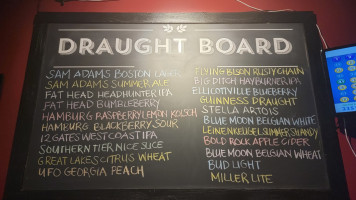 DRAUGHT BOARD
SAM ADAMS BOSTON LAGER
SAM ADAMS SUMMER ALE
FAT HEAD HEADHUNTER IPA
FAT HEAD BUMBLEBERRY
HAMBURG RASPBERRY LEMON KOLSCH
HAMBURG BLACKBERRY SOUR
12 GATES WEST COAST IPA
SOUTHERN TIER NICE SLICE
GREAT LAKES CITRUS WHEAT
UFO GEORGIA PEACH
FLYING BISON RUSTY CHAIN
BIG DITCH HAYBURNER IPA
ELLICOTTVILLE BLUEBERRY
GUINNESS DRAUGHT
STELLA ARTOIS
BLUE MOON BELGIAN WHITE
LEINENKUGEL SUMMER SHANDY
BOLD ROCK APPLE CIDER
BLUE MOON BELGIAN WHEAT
BUD LIGHT
MILLER LITE